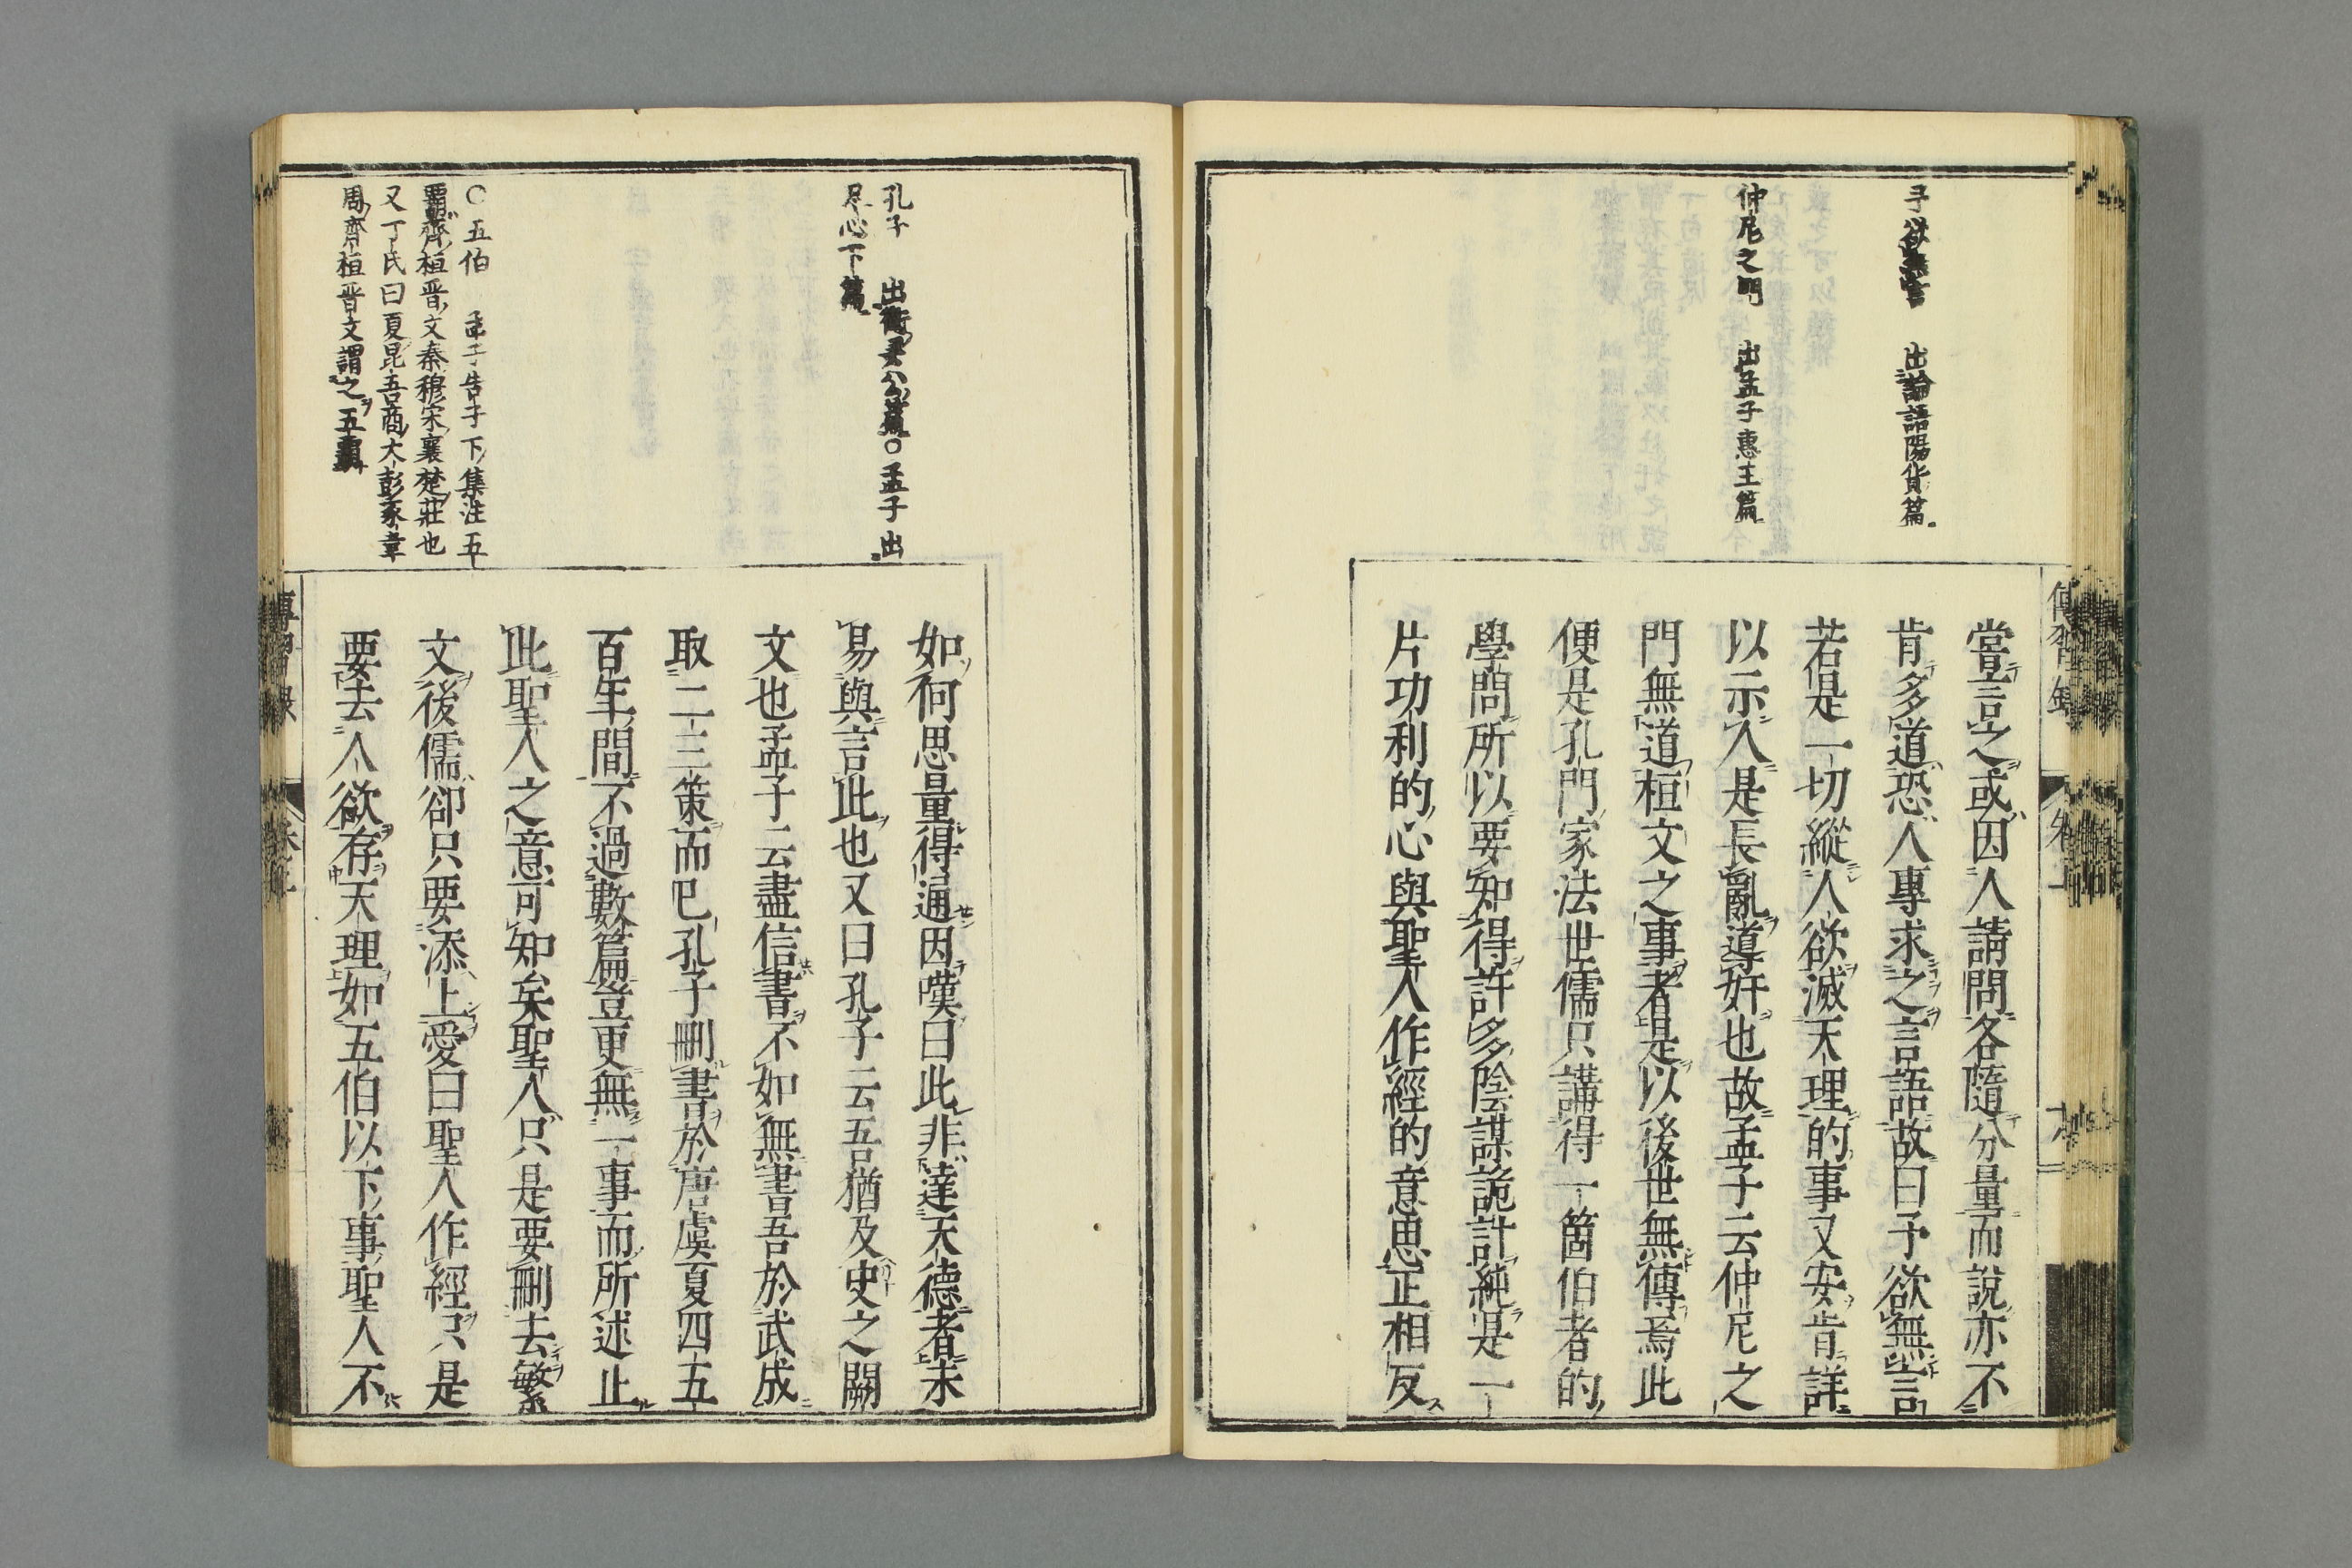 予欲無言　出論語陽貨篇
仲尼之門　出孟子惠王篇
嘗言之或因人請問各隨分量而說亦不
肯多道恐人專求之言語故曰予欲無言
若是一切縱人欲滅天理的事又安肯詳
以示人是長亂導奸也故孟子云仲尼之
門無道桓文之事者是以後世無傳焉此
便是孔門家法世儒只講得一箇伯者的
學問所以要知得許多陰謀詭計純是一
片功利的心與聖人作經的意思正相反
孔子　出衛灵公篇○孟子出
尽心下篇
○五伯　孟子告子下集注五
覇齊桓晋文秦穆宋襄楚莊也
又丁氏曰夏昆吾商大彭豕韋
周齊桓晋文謂之五覇
如何思量得通因嘆曰此非達天德者未
易與言此也又曰孔子云吾猶及史之闕
文也孟子云盡信書不如無書吾於武成
取二三策而已孔子刪書於唐虞夏四五
百年間不過數篇豈更無一事而所述止
此聖人之意可知矣聖人只是要刪去繁
文後儒卻只要添上愛曰聖人作經只是
要去人欲存天理如五伯以下事聖人不